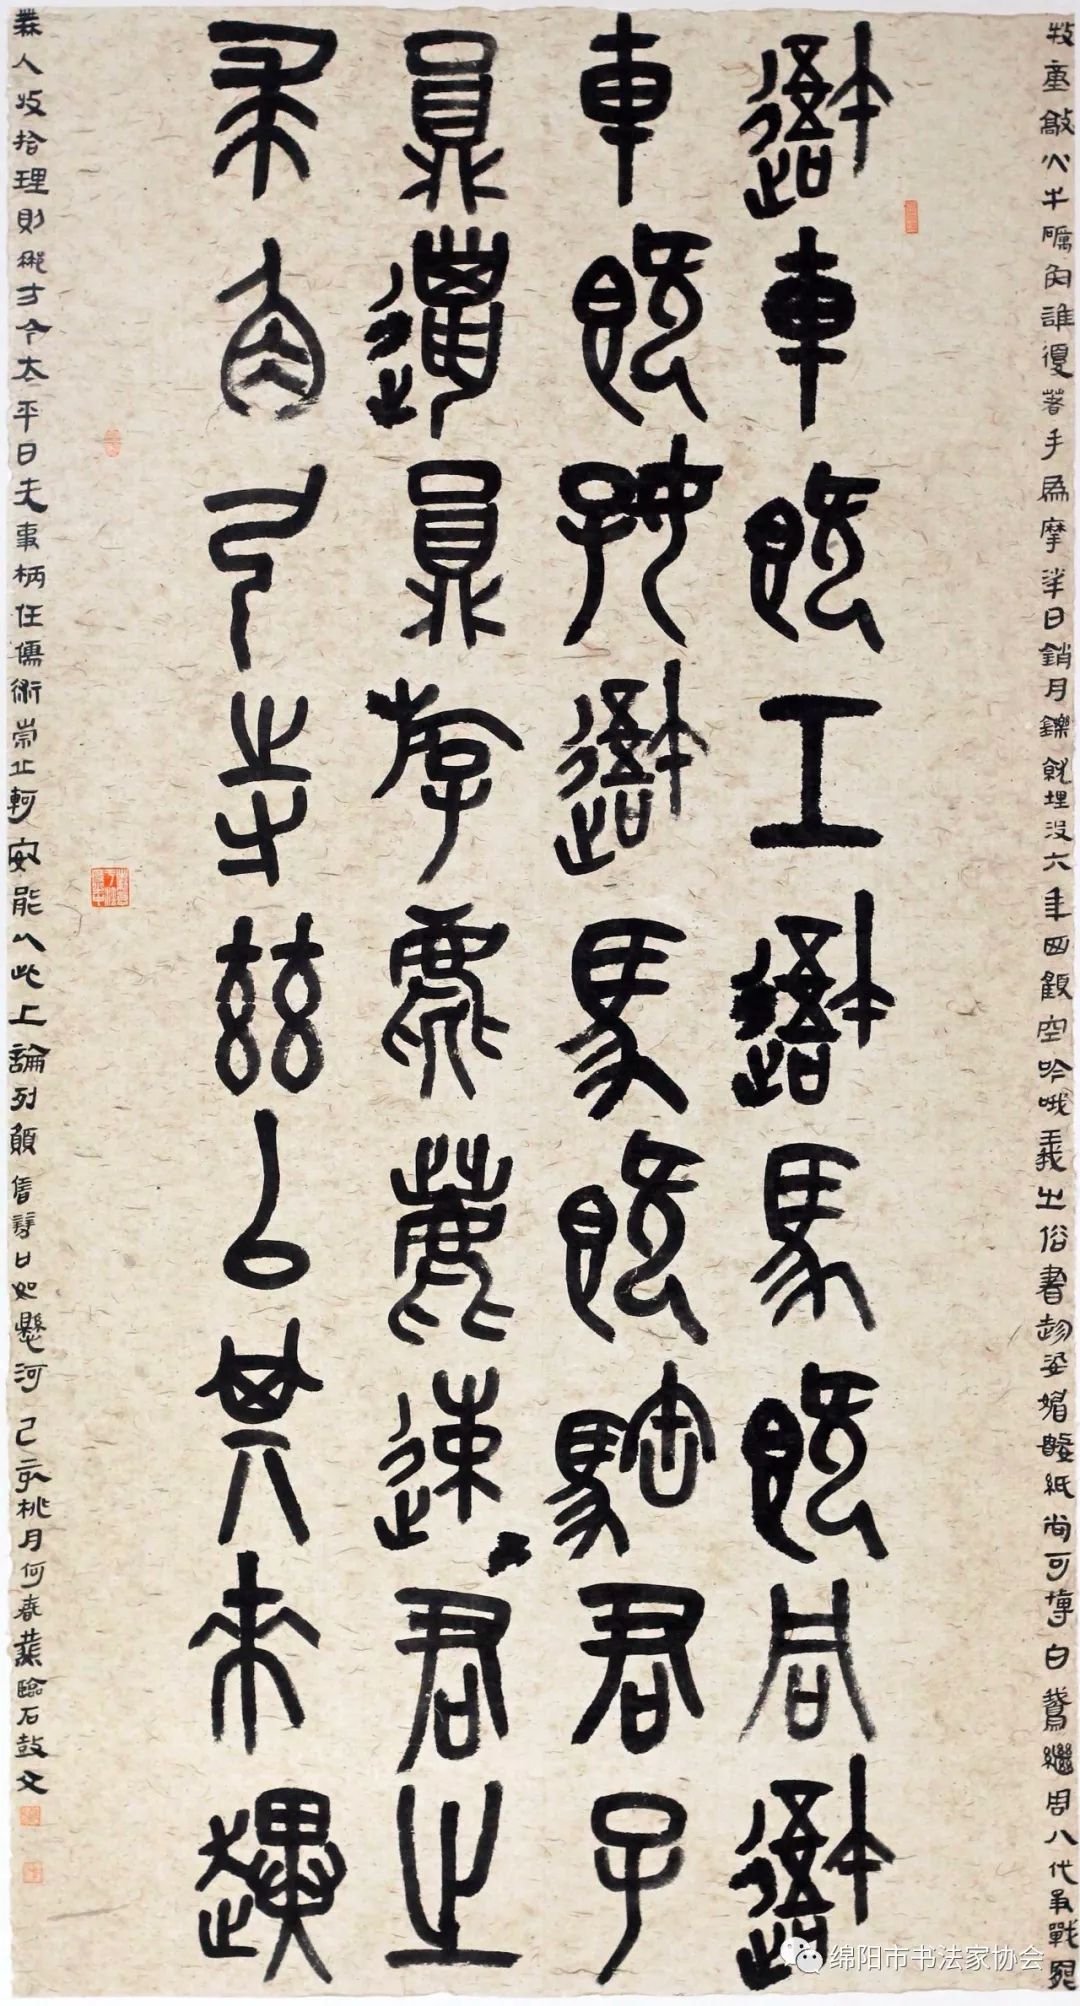 牧童敲火牛礪角誰復著手為摩挲日銷月鑠就埋沒六年西顧空吟哦羲之俗書趁姿媚數紙尚可博白鵝繼周八代爭戰罷
吾車既工吾馬既同吾
車既好吾馬既騊君子
員邋員斿麀鹿速君之
求角弓寺茲以其來趩
無人收拾理則那方今太平日无事柄任儒術崇丘軻安能以此上論列願借辯口如懸河 己亥桃月何春臨石鼓文
绵阳市书法家协会